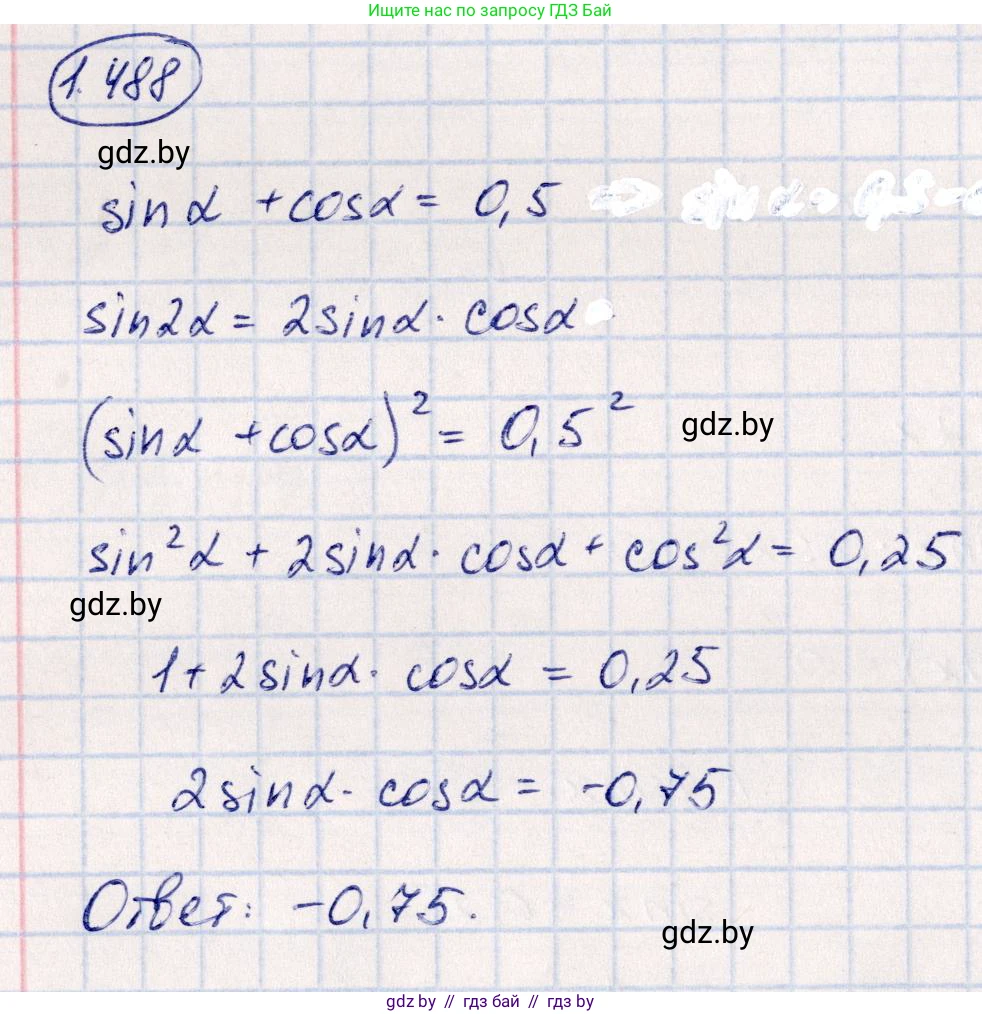 Ищите нас по запросу ГДЗ Бай
1.488
gdz.by
sinα + cosα = 0,5
sin2α = 2sinα · cosα
(sinα + cosα)² = 0,5²
gdz.by
sin²α + 2sinα · cosα + cos²α = 0,25
gdz.by
1 + 2sinα · cosα = 0,25
2sinα · cosα = -0,75
Ответ: -0,75.
gdz.by
gdz.by // гдз бай // гдз by